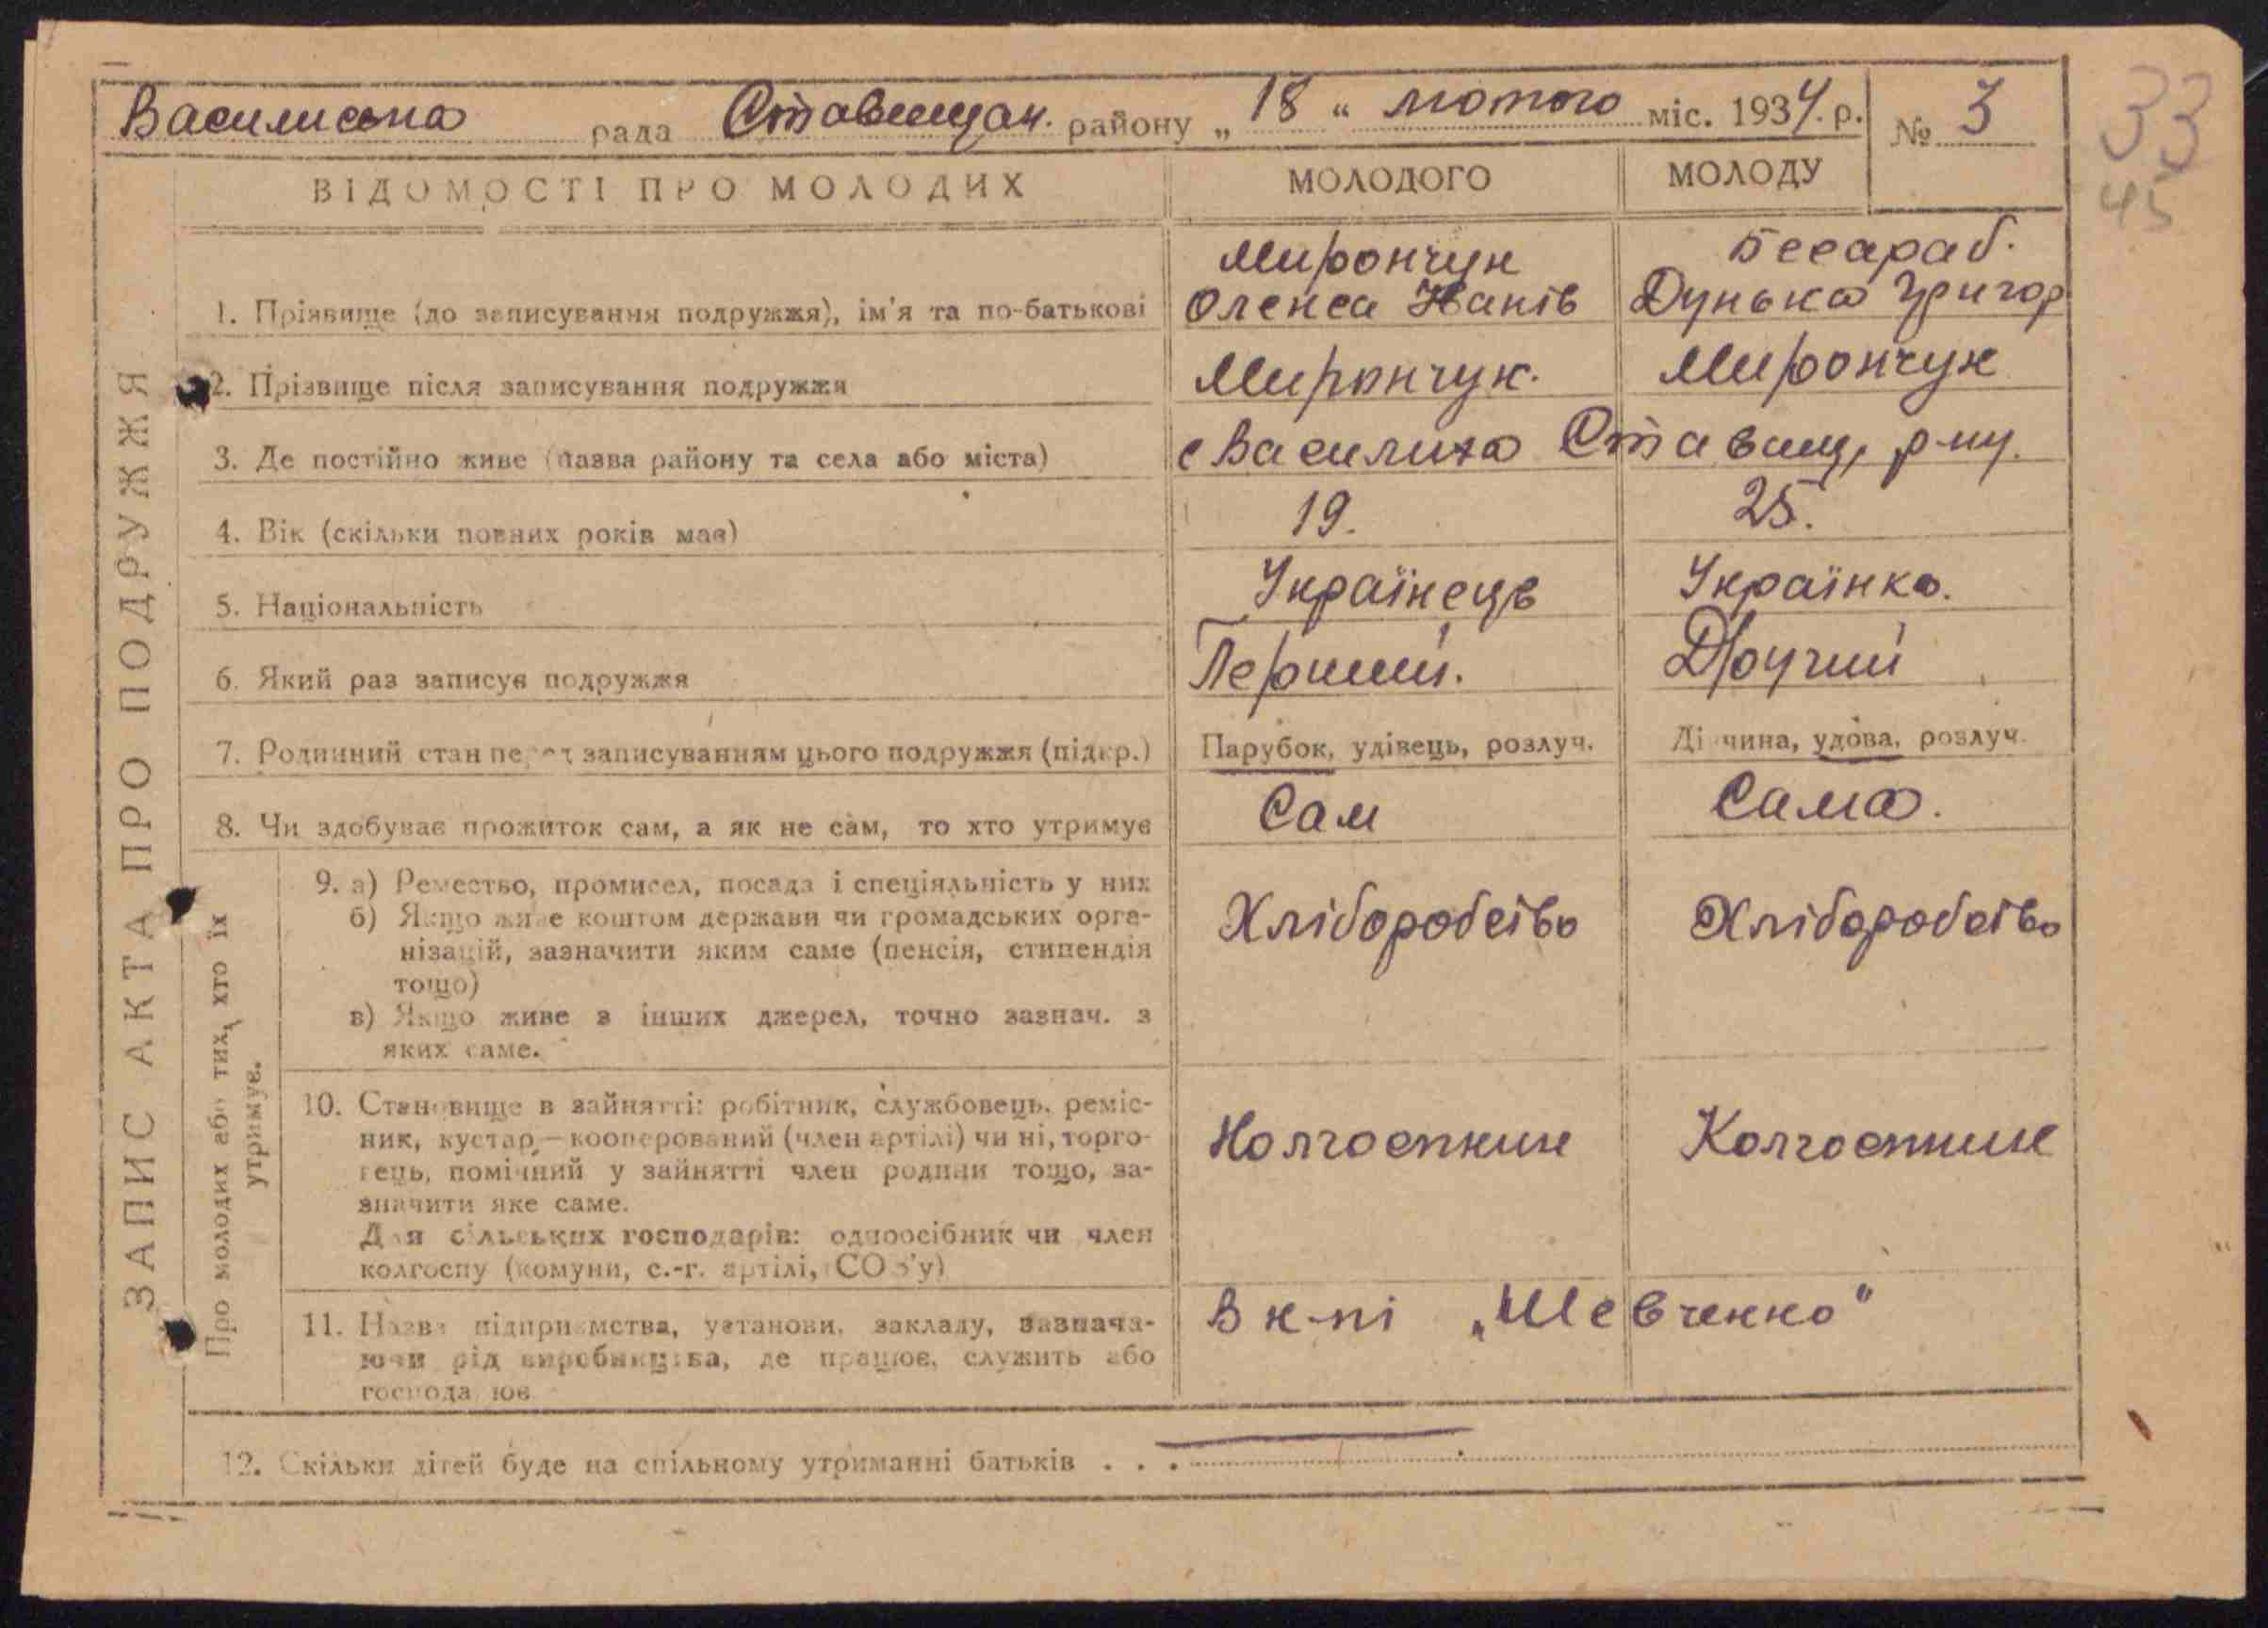 Василиська рада Ставищан. району „18“ лютого міс. 1934. р. № 3
33
45
ВІДОМОСТІ ПРО МОЛОДИХ МОЛОДОГО МОЛОДУ
ЗАПИС АКТА ПРО ПОДРУЖЖЯ
Мирончук Бесараб.
1. Прізвище (до записування подружжя), ім'я та по-батькові Олекса Дунька Григор
2. Прізвище після записування подружжя Мирончук. Мирончук
3. Де постійно живе (назва району та села або міста) с Василиха Ставищ, р-ну.
4. Вік (скільки повних років має) 19. 25.
5. Національність Українець Українка.
6. Який раз записує подружжя Перший. Другий
7. Родинний стан перед записуванням цього подружжя (підкр.) Парубок, удівець, розлуч. Дівчина, удова, розлуч.
8. Чи здобуває прожиток сам, а як не сам, то хто утримує Сам Сама.
Про молодих або тих, хто їх
утримує.
9. а) Ремество, промисел, посада і спеціяльність у них
б) Якщо живе коштом держави чи громадських орга-
нізацій, зазначити яким саме (пенсія, стипендія
тощо)
в) Якщо живе з інших джерел, точно зазнач. з
яких саме.
Хліборобсіво Хліборобсіво
10. Становище в зайнятті: робітник, службовець, реміс-
ник, кустар,—кооперований (член артілі) чи ні, торго-
вець, помічний у зайнятті член родини тощо, за-
значити яке саме.
Для сільських господарів: одноосібник чи член
колгоспу (комуни, с.-г. артілі, СОЗ'у)
Колгоспник Колгоспник
11. Назва підприємства, установи, закладу, зазнача-
ючи рід виробництва, де працює, служить або
господарює
В к-пі „Шевченко"
12. Скільки дітей буде на спільному утриманні батьків . . .